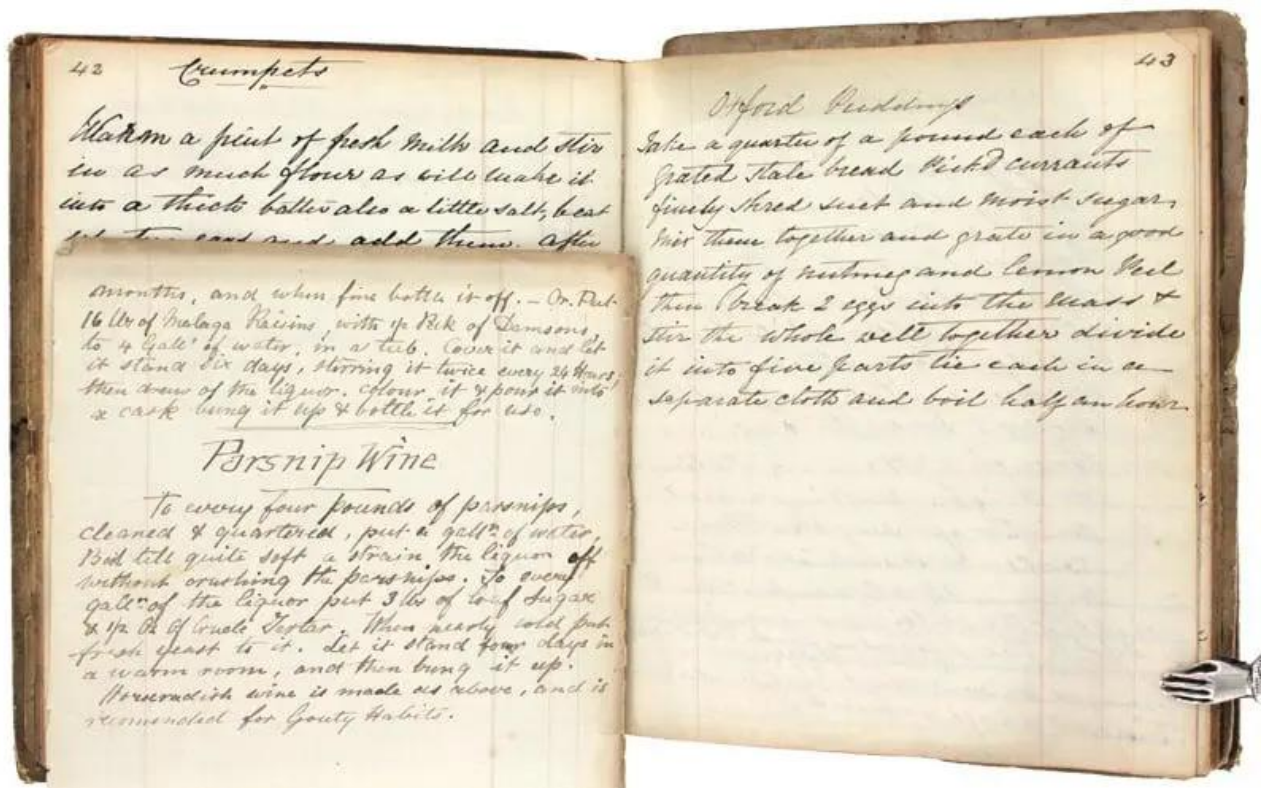 42
Crumpets
Warm a pint of fresh milk and stir
in as much flour as will make it
into a thick batter also a little salt, beat
add them. after
months, and when fine bottle it off. – Or. Put
16 lbs of Malaga Raisins, with 1/2 Peck of Damsons,
to 4 Galls of water, in a tub. Cover it and let
it stand Six days, stirring it twice every 24 Hours
then draw of the liquor. Colour it & pour it into
a cask bung it up & bottle it for use.
Parsnip Wine
To every four pounds of parsnips,
cleaned & quartered, put a galln of water,
Boil till quite soft & strain the liquor off
without crushing the parsnips. To every
galln of the liquor put 3 lbs of loaf Sugar
& 1/2 Oz of Crude Tartar. When nearly cold put
fresh yeast to it. Let it stand four days in
a warm room, and then bung it up.
Horseradish wine is made as above, and is
recomended for Gouty Habits.
43
Oxford Puddings
Take a quarter of a pound each of
grated stale bread Pick'd currants
finely shred suet and moist sugar,
mix them together and grate in a good
quantity of nutmeg and lemon Peel
then break 2 eggs into the mass &
stir the whole well together divide
it into five parts tie each in a
separate cloth and boil half an hour